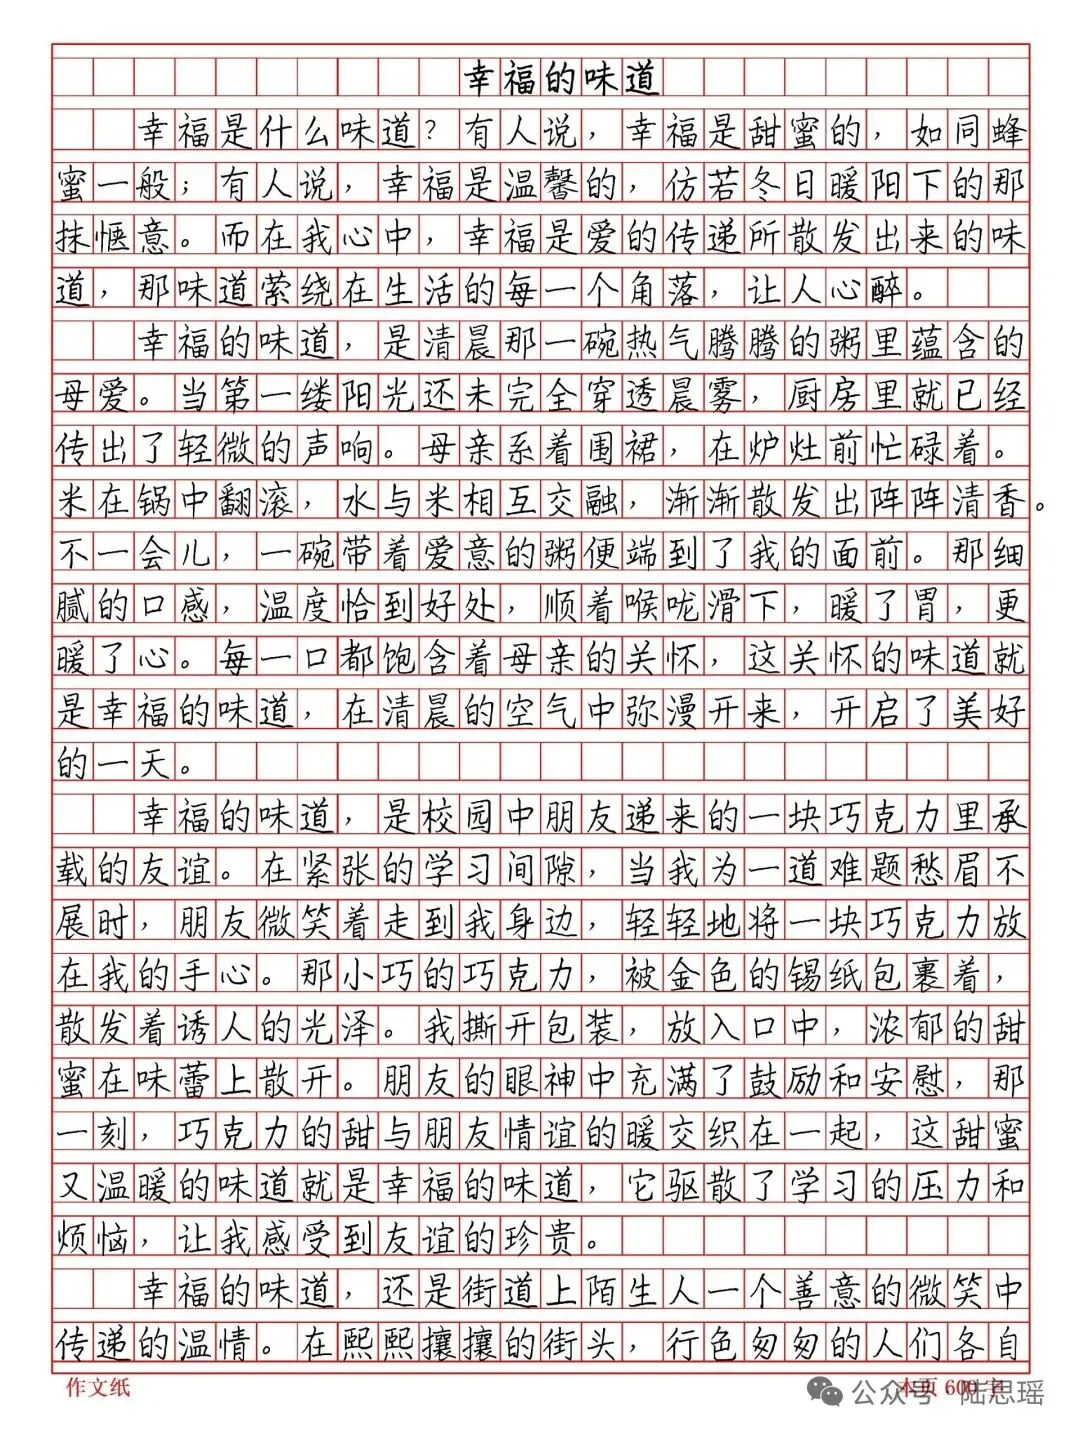 幸福的味道
幸福是什么味道？有人说，幸福是甜蜜的，如同蜂
蜜一般；有人说，幸福是温馨的，仿若冬日暖阳下的那
抹惬意。而在我心中，幸福是爱的传递所散发出来的味
道，那味道萦绕在生活的每一个角落，让人心醉。
幸福的味道，是清晨那一碗热气腾腾的粥里蕴含的
母爱。当第一缕阳光还未完全穿透晨雾，厨房里就已经
传出了轻微的声响。母亲系着围裙，在炉灶前忙碌着。
米在锅中翻滚，水与米相互交融，渐渐散发出阵阵清香。
不一会儿，一碗带着爱意的粥便端到了我的面前。那细
腻的口感，温度恰到好处，顺着喉咙滑下，暖了胃，更
暖了心。每一口都饱含着母亲的关怀，这关怀的味道就
是幸福的味道，在清晨的空气中弥漫开来，开启了美好
的一天。
幸福的味道，是校园中朋友递来的一块巧克力里承
载的友谊。在紧张的学习间隙，当我为一道难题愁眉不
展时，朋友微笑着走到我身边，轻轻地将一块巧克力放
在我的手心。那小巧的巧克力，被金色的锡纸包裹着，
散发着诱人的光泽。我撕开包装，放入口中，浓郁的甜
蜜在味蕾上散开。朋友的眼神中充满了鼓励和安慰，那
一刻，巧克力的甜与朋友情谊的暖交织在一起，这甜蜜
又温暖的味道就是幸福的味道，它驱散了学习的压力和
烦恼，让我感受到友谊的珍贵。
幸福的味道，还是街道上陌生人一个善意的微笑中
传递的温情。在熙熙攘攘的街头，行色匆匆的人们各自
作文纸
本页600字
公众号·陆思瑶